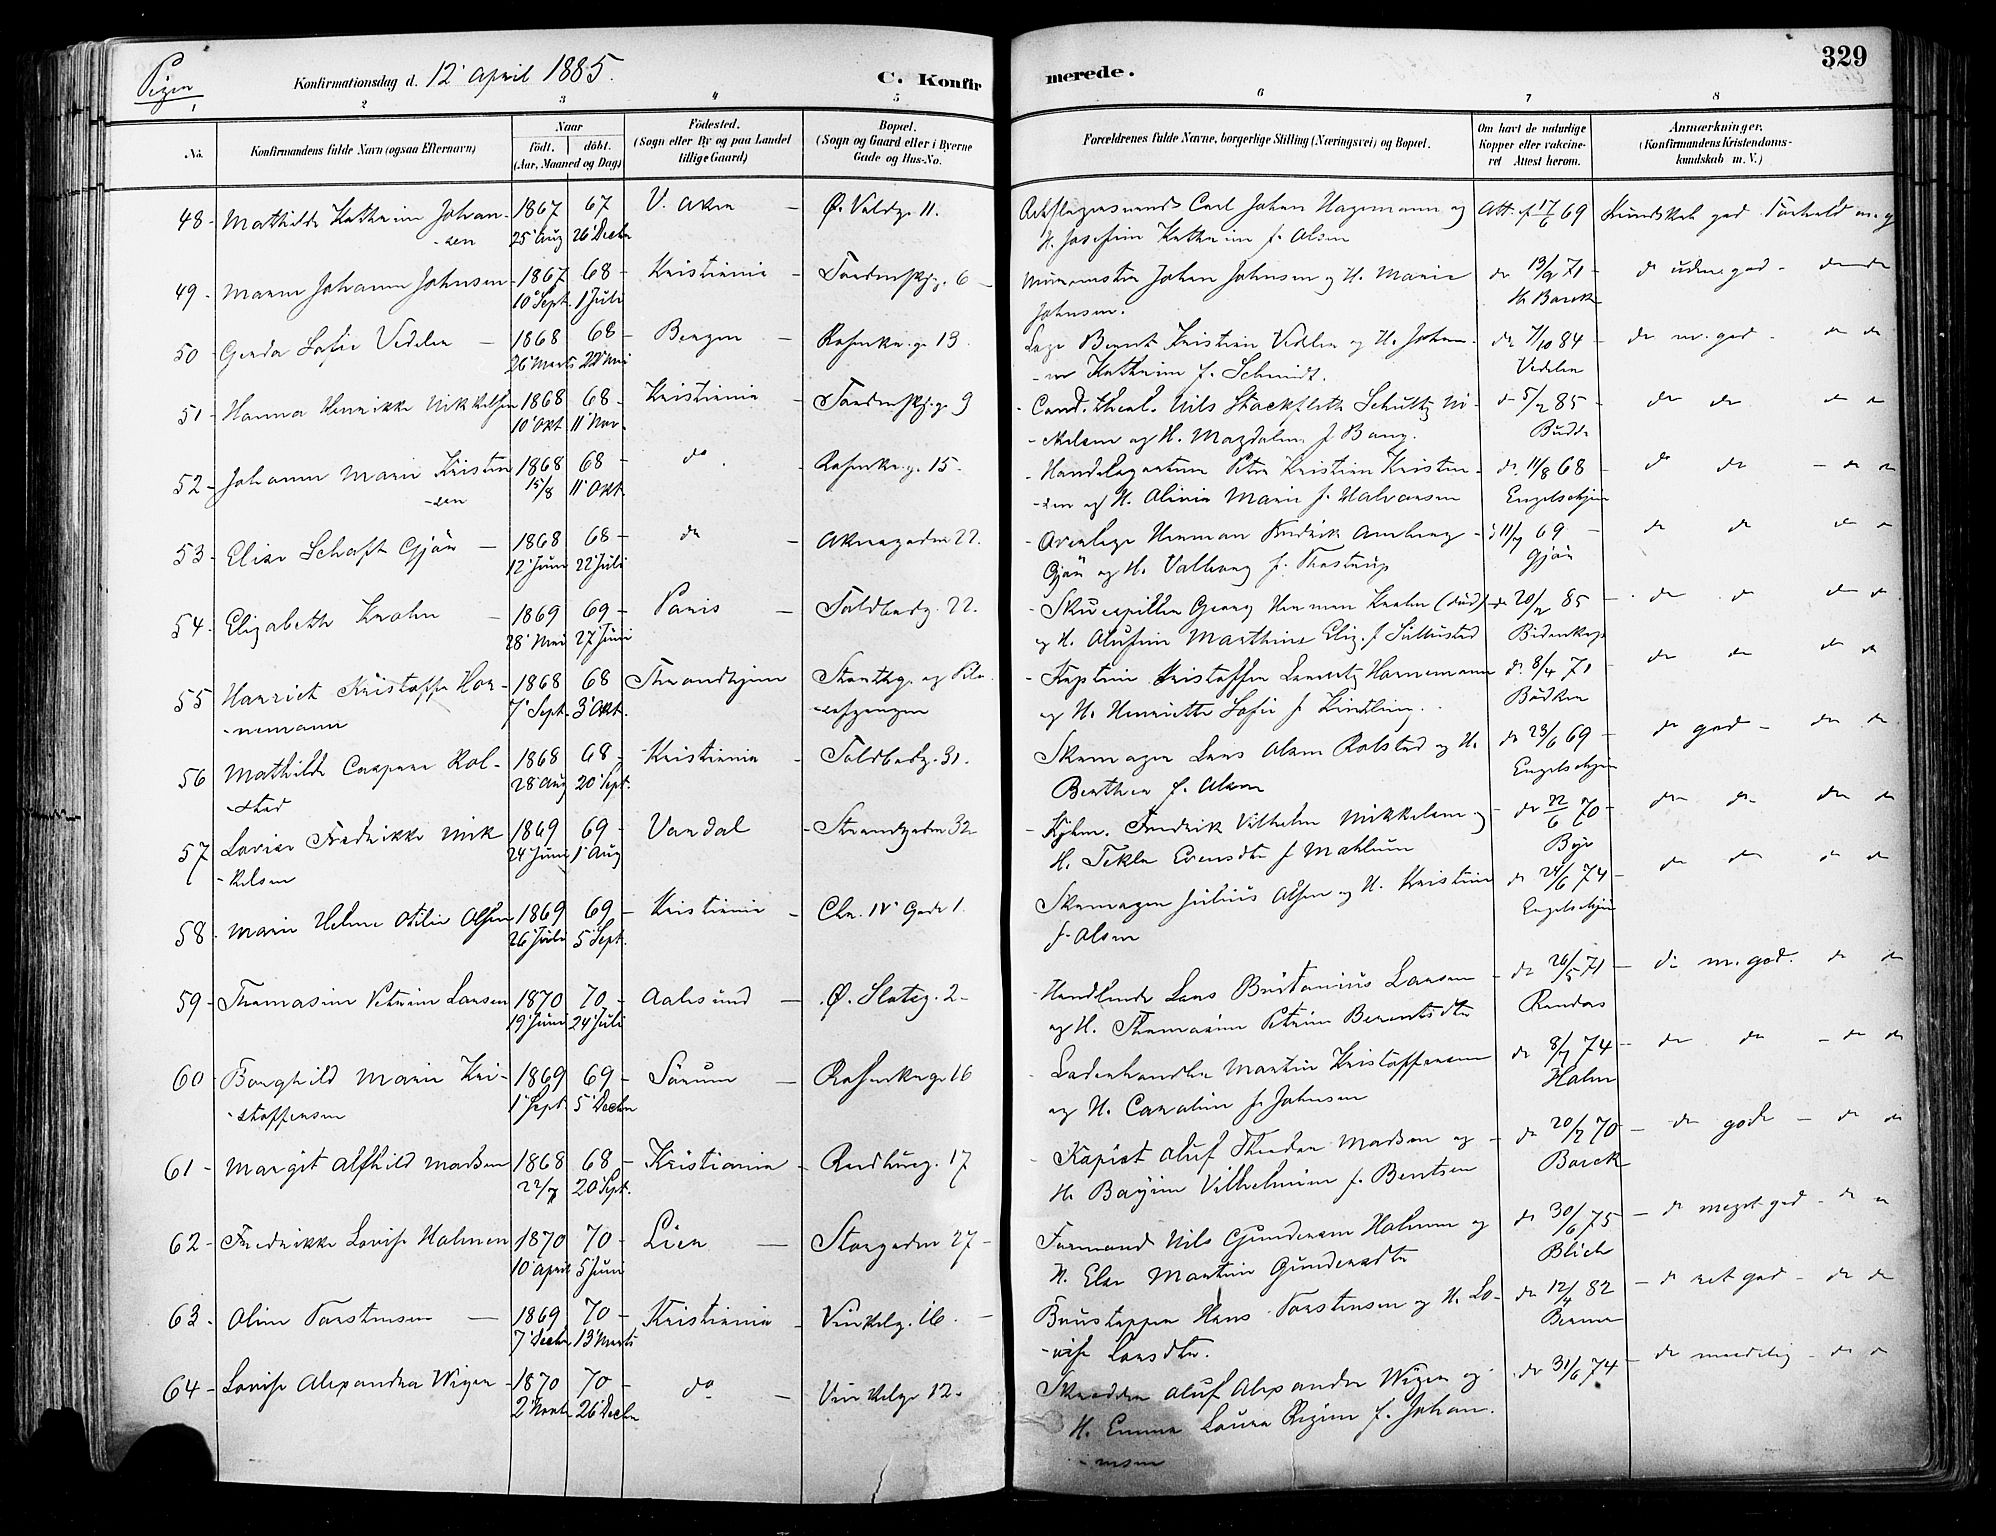 329
Piger
Konfirmationsdag d. 12' April 1885.
C. Konfirmerede.
1 2 3 4 5 6 7 8
No.
Konfirmandens fulde Navn (ogsaa Efternavn)
Naar
født. døbt.
(Aar, Maaned og Dag)
Födested.
(Sogn eller By og paa Landet
tillige Gaard)
Bopæl.
(Sogn og Gaard eller i Byerne
Gade og Hus-No.
Forældrenes fulde Navne, borgerlige Stilling (Næringsvei) og Bopæl.
Om havt de naturlige
Kopper eller vakcine-
ret Attest herom.
Anmærkninger.
(Konfirmandens Kristendoms-
kundskab m. V.)
48 - Mathilde Kathrine Johan- 1867 67 V. Aker - Ø. Voldg. 11. Carl Johan Hagemann og Att. af 17/6 69 Kundskab god. Forhold m. g
-sen 25' Aug 26' Decbr H. Josefine Kathrine f. Olsen
49 - Maren Johanne Johnsen 1867 68 - Kristiania - Tordenskj.g. 6 - Murmester Johan Johnsen og H. Marie do 13/9 71 - do udm. god - do do
10' Sept. 1' Juli Johnsen. H. Barck
50 Gerda Sofie Vedeler - 1868 68 - Bergen - Rosenkr.g. 13. Læge Berent Kristian Vedeler og H. Johan- do 7/10 84 - do m. god - do do
26' Marts 22' Mai -ne Kathrine f. Schmidt. Vedeler
51 - Hanna Henrikke Mikkelsen 1868 68 - Kristiania - Tordenskj.g. 9 - Cand. theol. Nils Stockfleth Schultz Mi- do 5/2 85 - do do do
10' Okt 11' Nov- -kkelsen og H. Magdalene f. Bang. Budde
52 - Johanne Marie Kristen 1868 68 - do. - Rosenkr.g. 15. - Handelsagent Peter Kristian Kristen- do 11/8 68 - do do - do
-sen 15/8 11' Okt. -sen og H. Olivia Marie f. Halvorsen Engelschjøn
53 - Elise Schaft Gjør - 1868 68 - do - Akersgaden 22. - Overlæge Herman Fredrik 11/7 69 - do do do
12' Juni 22' Juli Gjør og H. Valborg f. Thestrup Gjør
54. Elizabeth Krohn - 1869 69 - Paris - Toldbodg. 22. - Skuespiller Georg Herman Krohn (død) - do 20/2 85 - do do do
28' Mai 27' Juni og H. Alufine Marthine Eliz. f. Bidenkap
55 Harriet Kristoffa Hor- 1868 68 Throndhjem Strandg. og - Kaptein Kristoffer Lorentz Hornemann do. 8/4 71 - do do do
-nemann 7' Sept. 3' Okt. og H. Henriette Sofie f. Kindling. Bødker
56 Mathilde Caspara Rol- 1868 68 - Kristiania - Toldbodg. 31. Skomager Lars Olsen Rolstad og H. do 23/6 69 - do god - do do
-stad 28' Aug 20' Sept. Berthea f. Olsen Engelschjøn
57 Lovise Fredrikke Mik 1869 69 - Vardal - Strandgaden 32 - Kjbm. Fredrik Vilhelm Mikkelsen og - do 22/6 70 - do do do
-kelsen 24' Juni 1' Aug H. Tekla Evensdtr f. Mæhlum
58. Marie Helene Otilie Olsen 1869 69 - Kristiania - Chr. IV Gade 1. Skomager Julius Olsen og H. Kristine do 24/6 74 - do do do
26' Juli 5' Sept. f. Olsen Engelschjøn
59 - Thomasine Petrine Larsen 1870 70 - Aalesund - Ø. Slotsg. 2 - Handlende Lars Larsen - do 26/5 71 - do m. god. do do
19' Juni 24' Juli og H. Thomasine Petrine Berentsdtr Randers
60 - Borghild Marie Kri- 1869 69 - Sørum - Rosenkr.g. 16 - Lædershandler Martin Kristoffersen do 8/7 74 - do do - do do
-stoffersen 1' Sept. 5' Decbr og H. Caroline f. Johnsen Holm
61 - Margit Alfhild Madsen 1868 68 - Kristiania - 17 - Kopist Oluf Theodor Madsen og - do 20/2 70 - do gode - do do
22/7 20' Sept. H. Vilhelmine f. Bentsen Barck
62 - Fredrikke Lovise Holmen 1870 70 - Lier - Storgaden 27 - Formand Nils Gundersen Holmen og do 30/6 75 - do meget god - do
10' April 5' Juni H. Else Martine Gundersdtr Blich
63. Oline Torstensen - 1869 70 - Kristiania - Vinkelg. 16. - Hans Torstensen og H. Lo- do 12/4 82 - do ret god - do do
7' Decbr 13' Marts -vise Larsdtr.
64 - Lovise Alexandra Wigen - 1870 70 - do - Vinkelg. 12. Skrædder Oluf Alexander Wigen og - do 31/6 74 - do maadelig - do do
26' Decbr H. Emma Laura Regine f. Johan-
-nsen